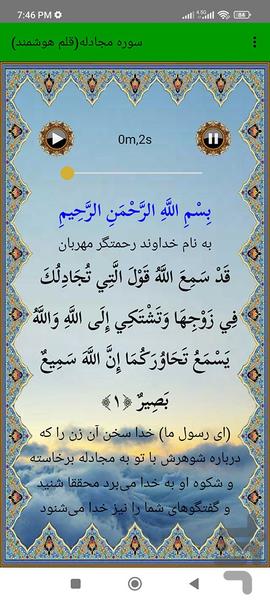 7:46 PM
سوره مجادله(قلم هوشمند)
0m,2s
بِسْمِ اللَّهِ الرَّحْمَنِ الرَّحِيمِ
به نام خداوند رحمتگر مهربان
قَدْ سَمِعَ اللَّهُ قَوْلَ الَّتِي تُجَادِلُكَ
فِي زَوْجِهَا وَتَشْتَكِي إِلَى اللَّهِ وَاللَّهُ
يَسْمَعُ تَحَاوُرَكُمَا إِنَّ اللَّهَ سَمِيعٌ
بَصِيرٌ ﴿۱﴾
(ای رسول ما) خدا سخن آن زن را که
درباره شوهرش با تو به مجادله برخاسته
و شکوه او به خدا می‌برد محققا شنید
و گفتگوهای شما را نیز خدا می‌شنود